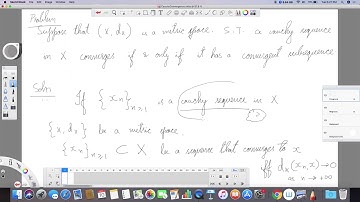 Problem
Suppose that (X, dx) is a metric space. S.T. a cauchy sequence
in X converges if & only if it has a convergent subsequence.
Soln
If {xn}n≥1 is a cauchy sequence in X
{X, dx} be a metric space.
{xn}n≥1 ⊂ X be a sequence that converges to x
iff dx(xn, x) → 0
as n → +∞